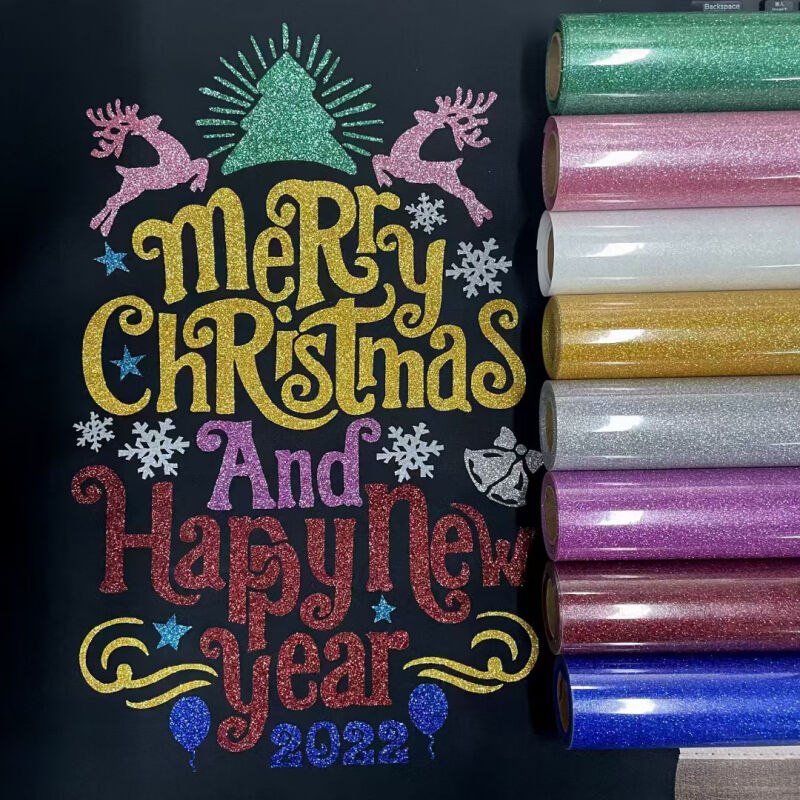 Backspace
Merry
Christmas
And
Happy New
Year
2022